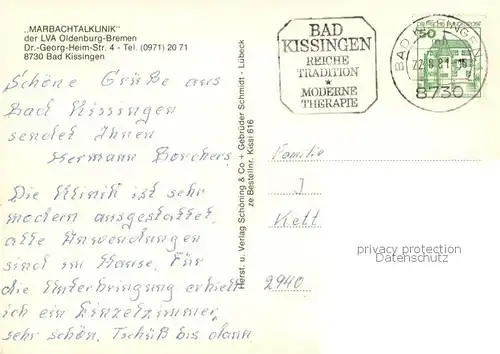 „MARBACHTALKLINIK"
der LVA Oldenburg-Bremen
Dr.-Georg-Heim-Str. 4 - Tel. (0971) 20 71
8730 Bad Kissingen
Schöne Grüße aus
Bad Kissingen
sendet Ihnen
Hermann Borchers.
Die Klinik ist sehr
modern ausgestattet.
alle Anwendungen
sind im Hause. Für
die Unterbringung erhielt
ich ein Einzelzimmer,
sehr schön. Tschüß bis dann
Herst. u. Verlag Schöning & Co + Gebrüder Schmidt - Lübeck
ze Bestellnr. Kissi 616
BAD
KISSINGEN
REICHE
TRADITION
★
MODERNE
THERAPIE
BAD KISSINGEN
8730
DEUTSCHE BUNDESPOST
50
Familie
J
Kett
2940
privacy protection
Datenschutz